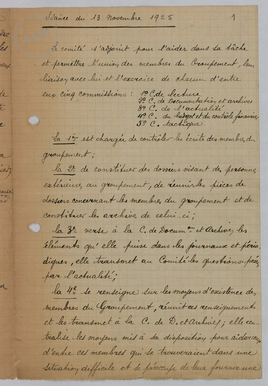 Séance du 13 Novembre 1925
1
Le comité s'adjoint pour l'aider dans sa tâche
et permettre l'union des membres du Groupement, leur
liaison avec lui et l'exercice de chacun d'entre
eux cinq commissions : 1° C. de lecture
2° C. de documentation et archives
3° C. de l'actualité
4° C. du budget et du contrôle financier
5° C. tactique
La 1re est chargée de contrôler les écrits des membres du
groupement ;
La 2e de constituer des dossiers visant des personnes
extérieures au groupement, de réunir les pièces de
dossiers concernant les membres du groupement et de
constituer les archives de celui-ci ;
La 3e verse à la C. de Docum. et Archives, les
éléments qu'elle puise dans les journaux et pério
diques, elle transmet au Comité les questions posées
par l'actualité ;
La 4e se renseigne sur les moyens d'existence des
membres du Groupement, réunit ces renseignements
et les transmet à la C. de D. et Archives ; elle cen
tralise les moyens mis à sa disposition pour aider ceux
d'entre ces membres qui se trouveraient dans une
situation difficile et s'occupe de leur fournir une